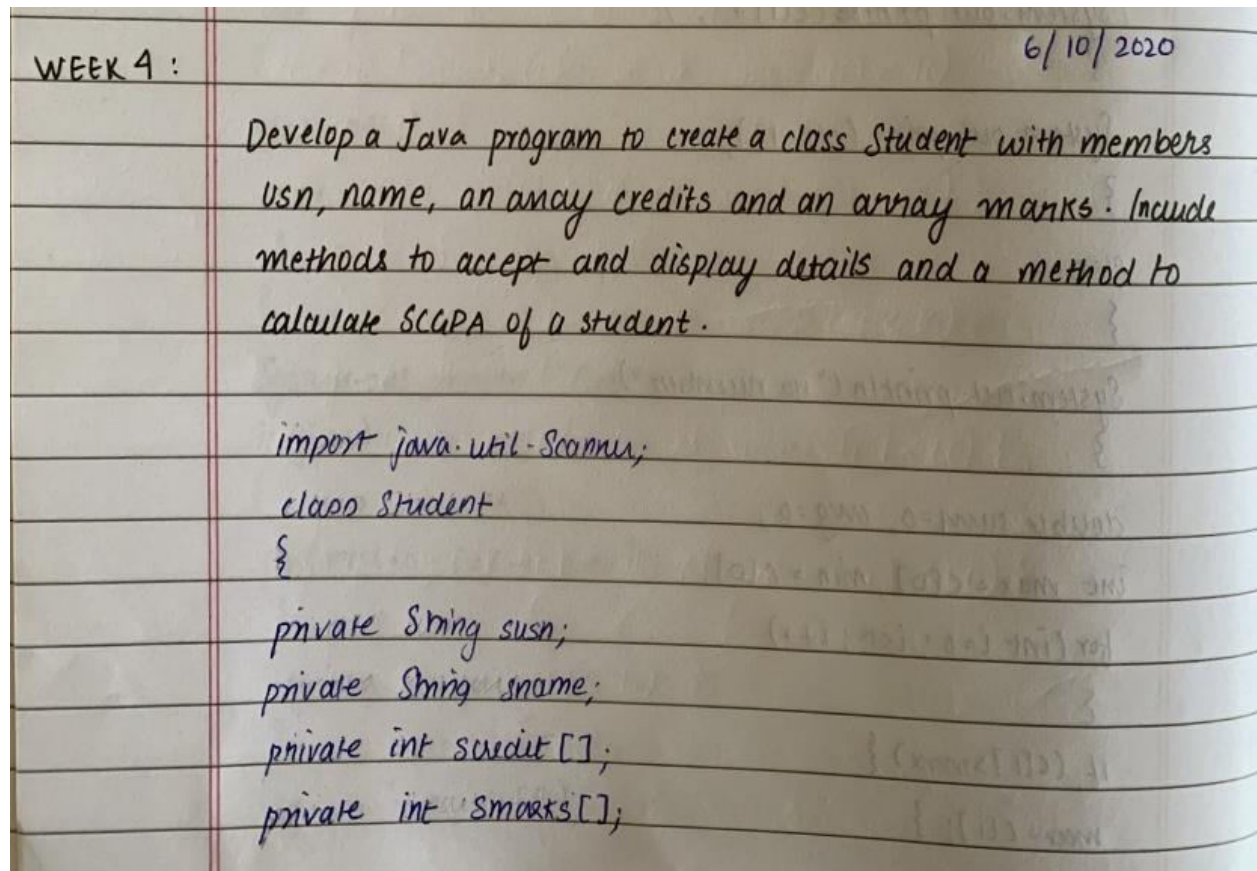 6/10/2020
WEEK 4:
Develop a Java program to create a class Student with members
usn, name, an array credits and an array marks. Include
methods to accept and display details and a method to
calculate SCGPA of a student.
import java.util.Scanner;
class Student
{
private String susn;
private String sname;
private int scredit[];
private int smarks[];